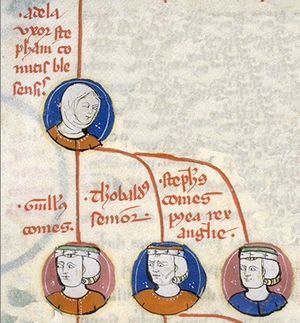 ·adela
vxor ste
phani co
mitis ble
sensis
·Guill's
comes·
·thobald'
senior
·steph's
comes
postea rex
anglie·